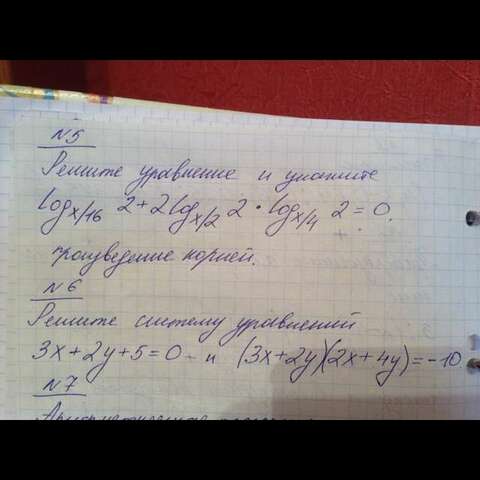 N5
Решите уравнение и укажите
log x/16 2 + 2 log x/2 2 · log x/4 2 = 0,
произведение корней.
N6
Решите систему уравнений
3x + 2y + 5 = 0 и (3x + 2y)(2x + 4y) = -10.
N7